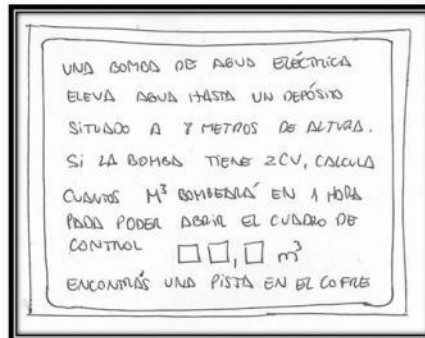 UNA BOMBA DE AGUA ELÉCTRICA
ELEVA AGUA HASTA UN DEPÓSITO
SITUADO A 8 METROS DE ALTURA.
SI LA BOMBA TIENE 2CV, CALCULA
CUANTOS M³ BOMBEARÁ EN 1 HORA
PARA PODER ABRIR EL CUADRO DE
CONTROL □□,□ m³
ENCONTRÁS UNA PISTA EN EL COFRE